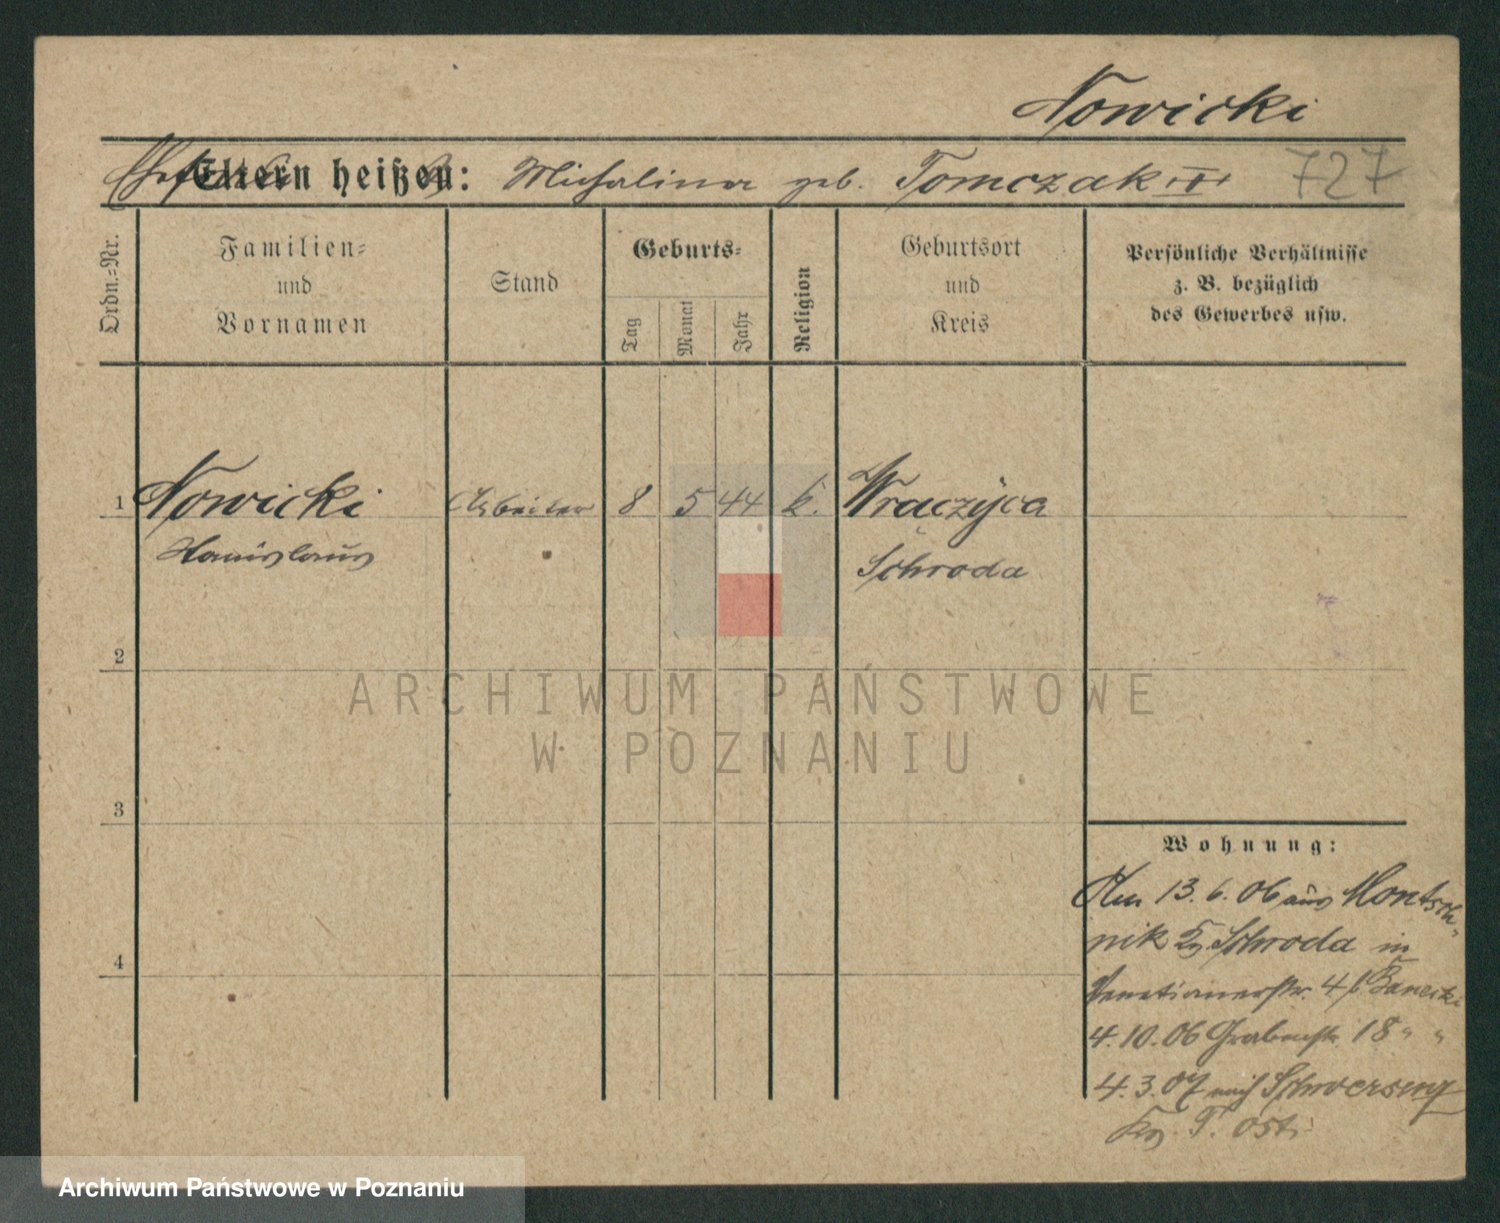 Nowicki
Eltern heißen: Michalina geb. Tomczak III 727
Ordn.=Nr.
Familien=
und
Vornamen
Stand
Geburts=
Tag
Monat
Jahr
Religion
Geburtsort
und
Kreis
Persönliche Verhältnisse
z. B. bezüglich
des Gewerbes usw.
1 Nowicki Arbeiter 8 5 44 k. Wraczyca
Stanislaus Schroda
2
ARCHIWUM PAŃSTWOWE
W POZNANIU
3
Wohnung:
13. 6. 06 aus Montsch-
nik Schroda in
Venetianerstr. 4
4. 10. 06 Grabenstr. 18 " "
4. 3. 07 nach Schwersenz
P. Ost.
4
Archiwum Państwowe w Poznaniu